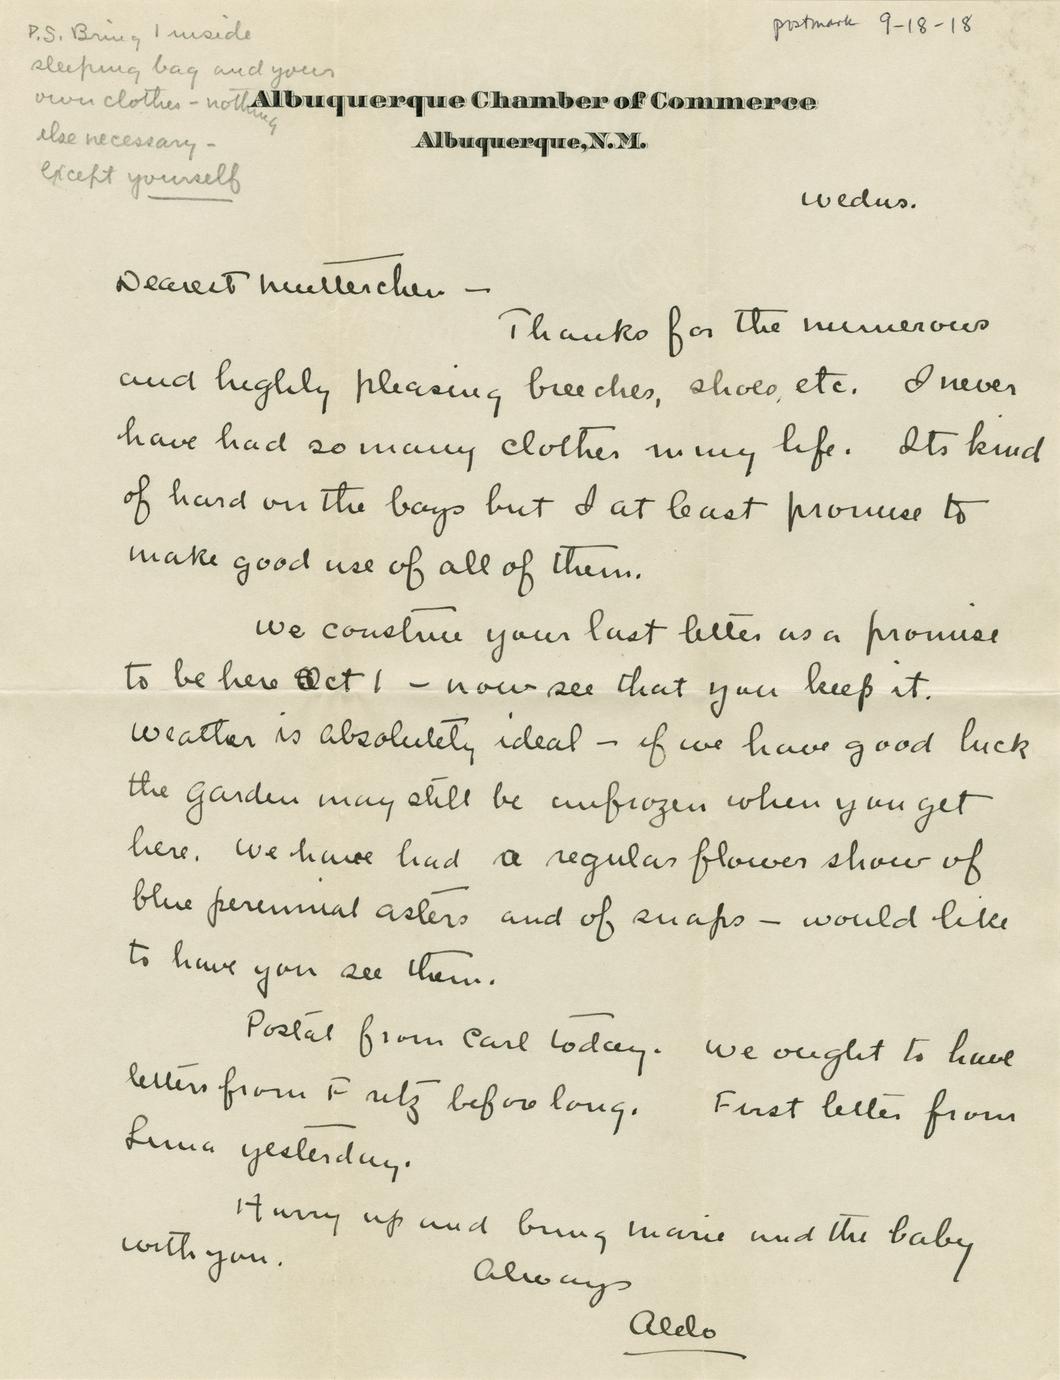 postmark 9-18-18
P.S. Bring 1 inside
sleeping bag and your
own clothes - nothing
else necessary -
except yourself
Albuquerque Chamber of Commerce
Albuquerque, N.M.
Wedns.
Dearest Mutterchen -
Thanks for the numerous
and highly pleasing breeches, shoes, etc. I never
have had so many clothes in my life. Its kind
of hard on the boys but I at least promise to
make good use of all of them.
We construe your last letter as a promise
to be here Oct 1 - now see that you keep it.
Weather is absolutely ideal - if we have good luck
the garden may still be unfrozen when you get
here. We have had a regular flower show of
blue perennial asters and of snaps - would like
to have you see them.
Postal from Carl today. We ought to have
letters from Fritz before long. First letter from
Luna yesterday.
Hurry up and bring Marie and the baby
with you.
Always
Aldo